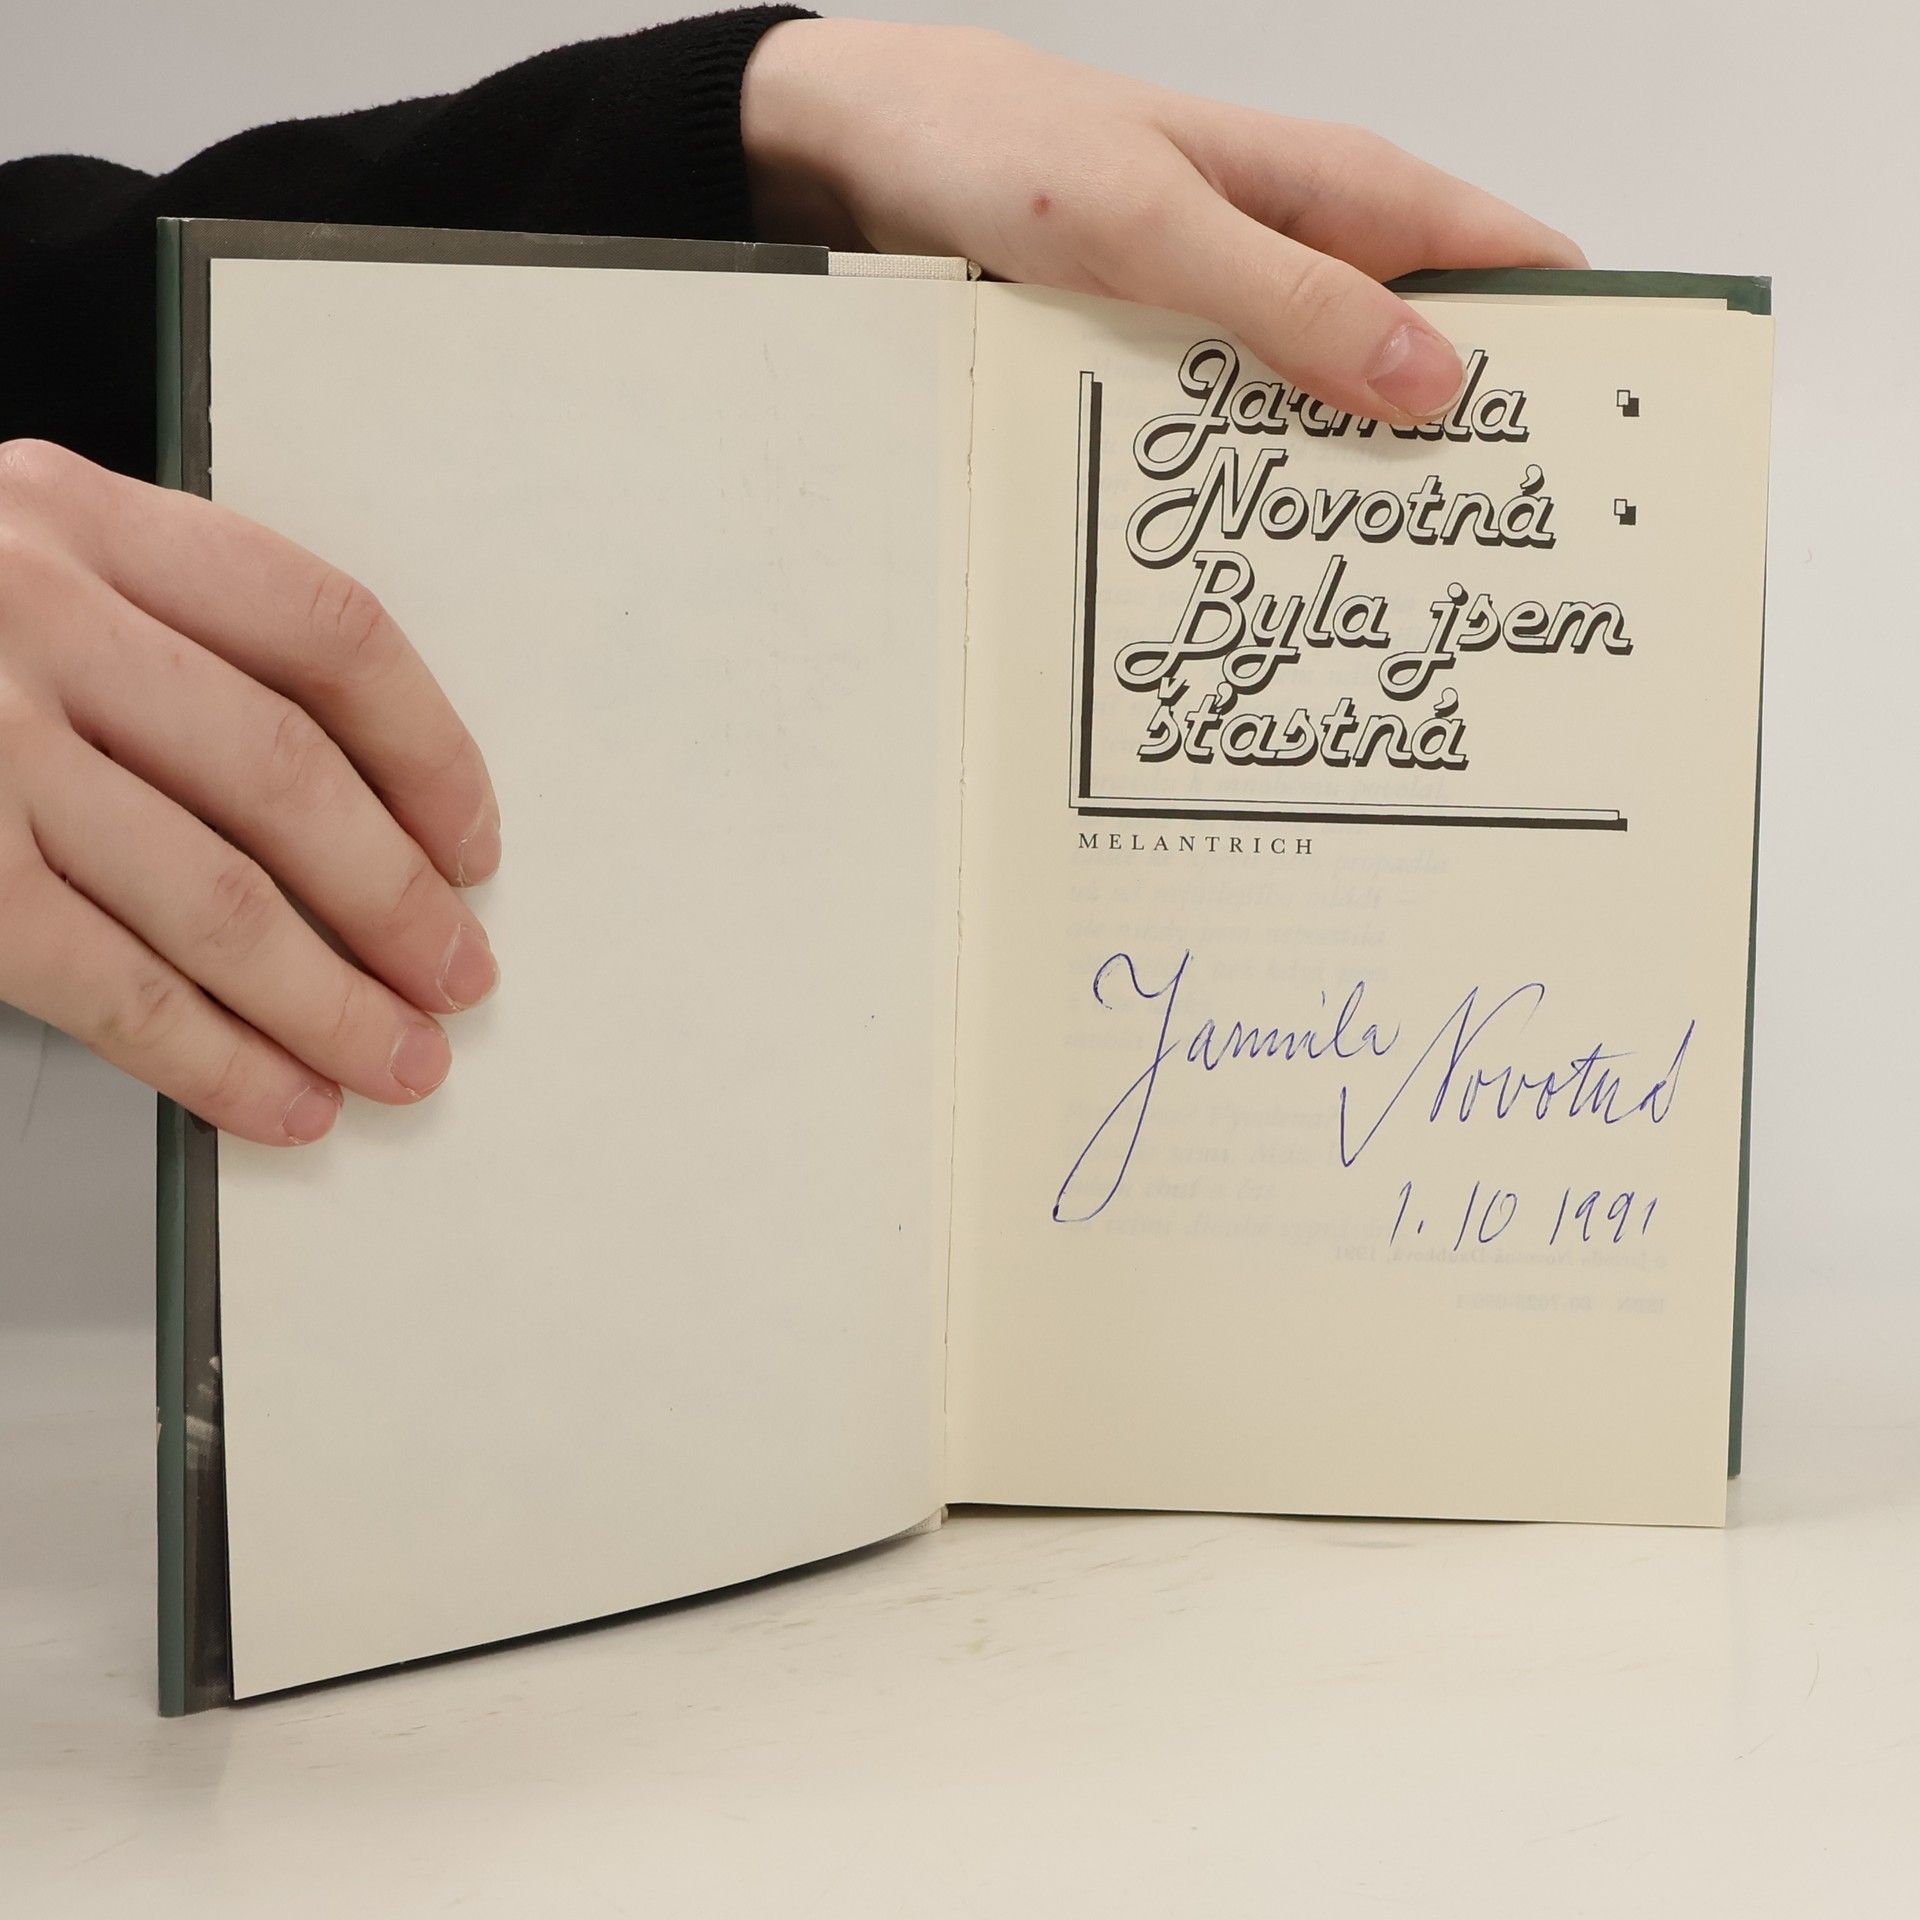 Jarmila
Novotná
Byla jsem
šťastná
MELANTRICH
Jarmila Novotná
1. 10 1991